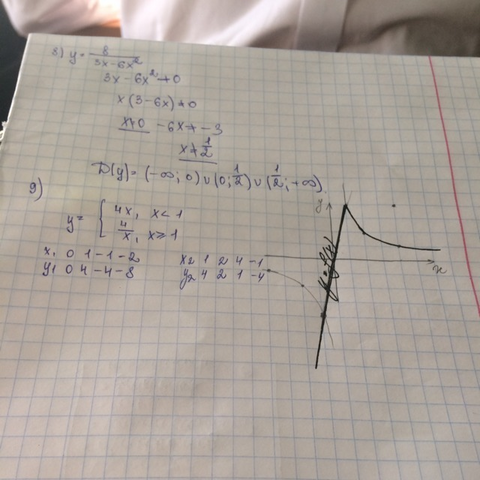 8) y = 8/(3x-6x²)
3x - 6x² ≠ 0
x(3-6x) ≠ 0
x≠0 -6x ≠ -3
x ≠ 1/2
D(y) = (-∞; 0) ∪ (0; 1/2) ∪ (1/2; +∞)
9)
y = { 4x, x < 1
4/x, x ≥ 1
x₁ 0 1 -1 -2 x₂ 1 2 4 -1
y₁ 0 4 -4 -8 y₂ 4 2 1 -4
y
x